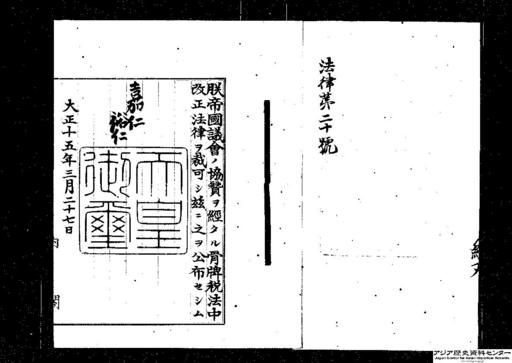 法律第二十號
朕帝國議會ノ協贊ヲ經タル骨牌稅法中
改正法律ヲ裁可シ茲ニ之ヲ公布セシム
嘉仁
裕仁
天皇
御璽
大正十五年三月二十七日
内閣
アジア歴史資料センター
Japan Center for Asian Historical Records